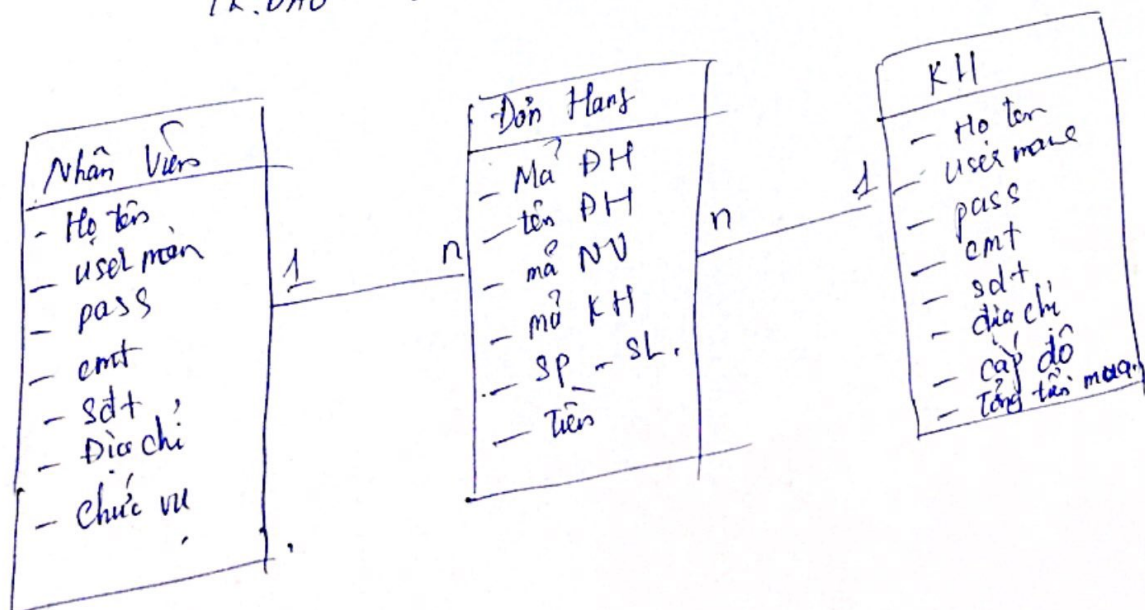 Nhân Viên
- Họ tên
- user man
- pass
- cmt
- sđt
- Địa chỉ
- Chức vụ
1
n
Đơn Hang
- Mã ĐH
- tên ĐH
- mã NV
- mã KH
- SP - SL.
- Tiền
n
1
KH
- Ho ten
- user name
- pass
- cmt
- sdt
- địa chỉ
- cấp độ
- Tổng tiền mua.